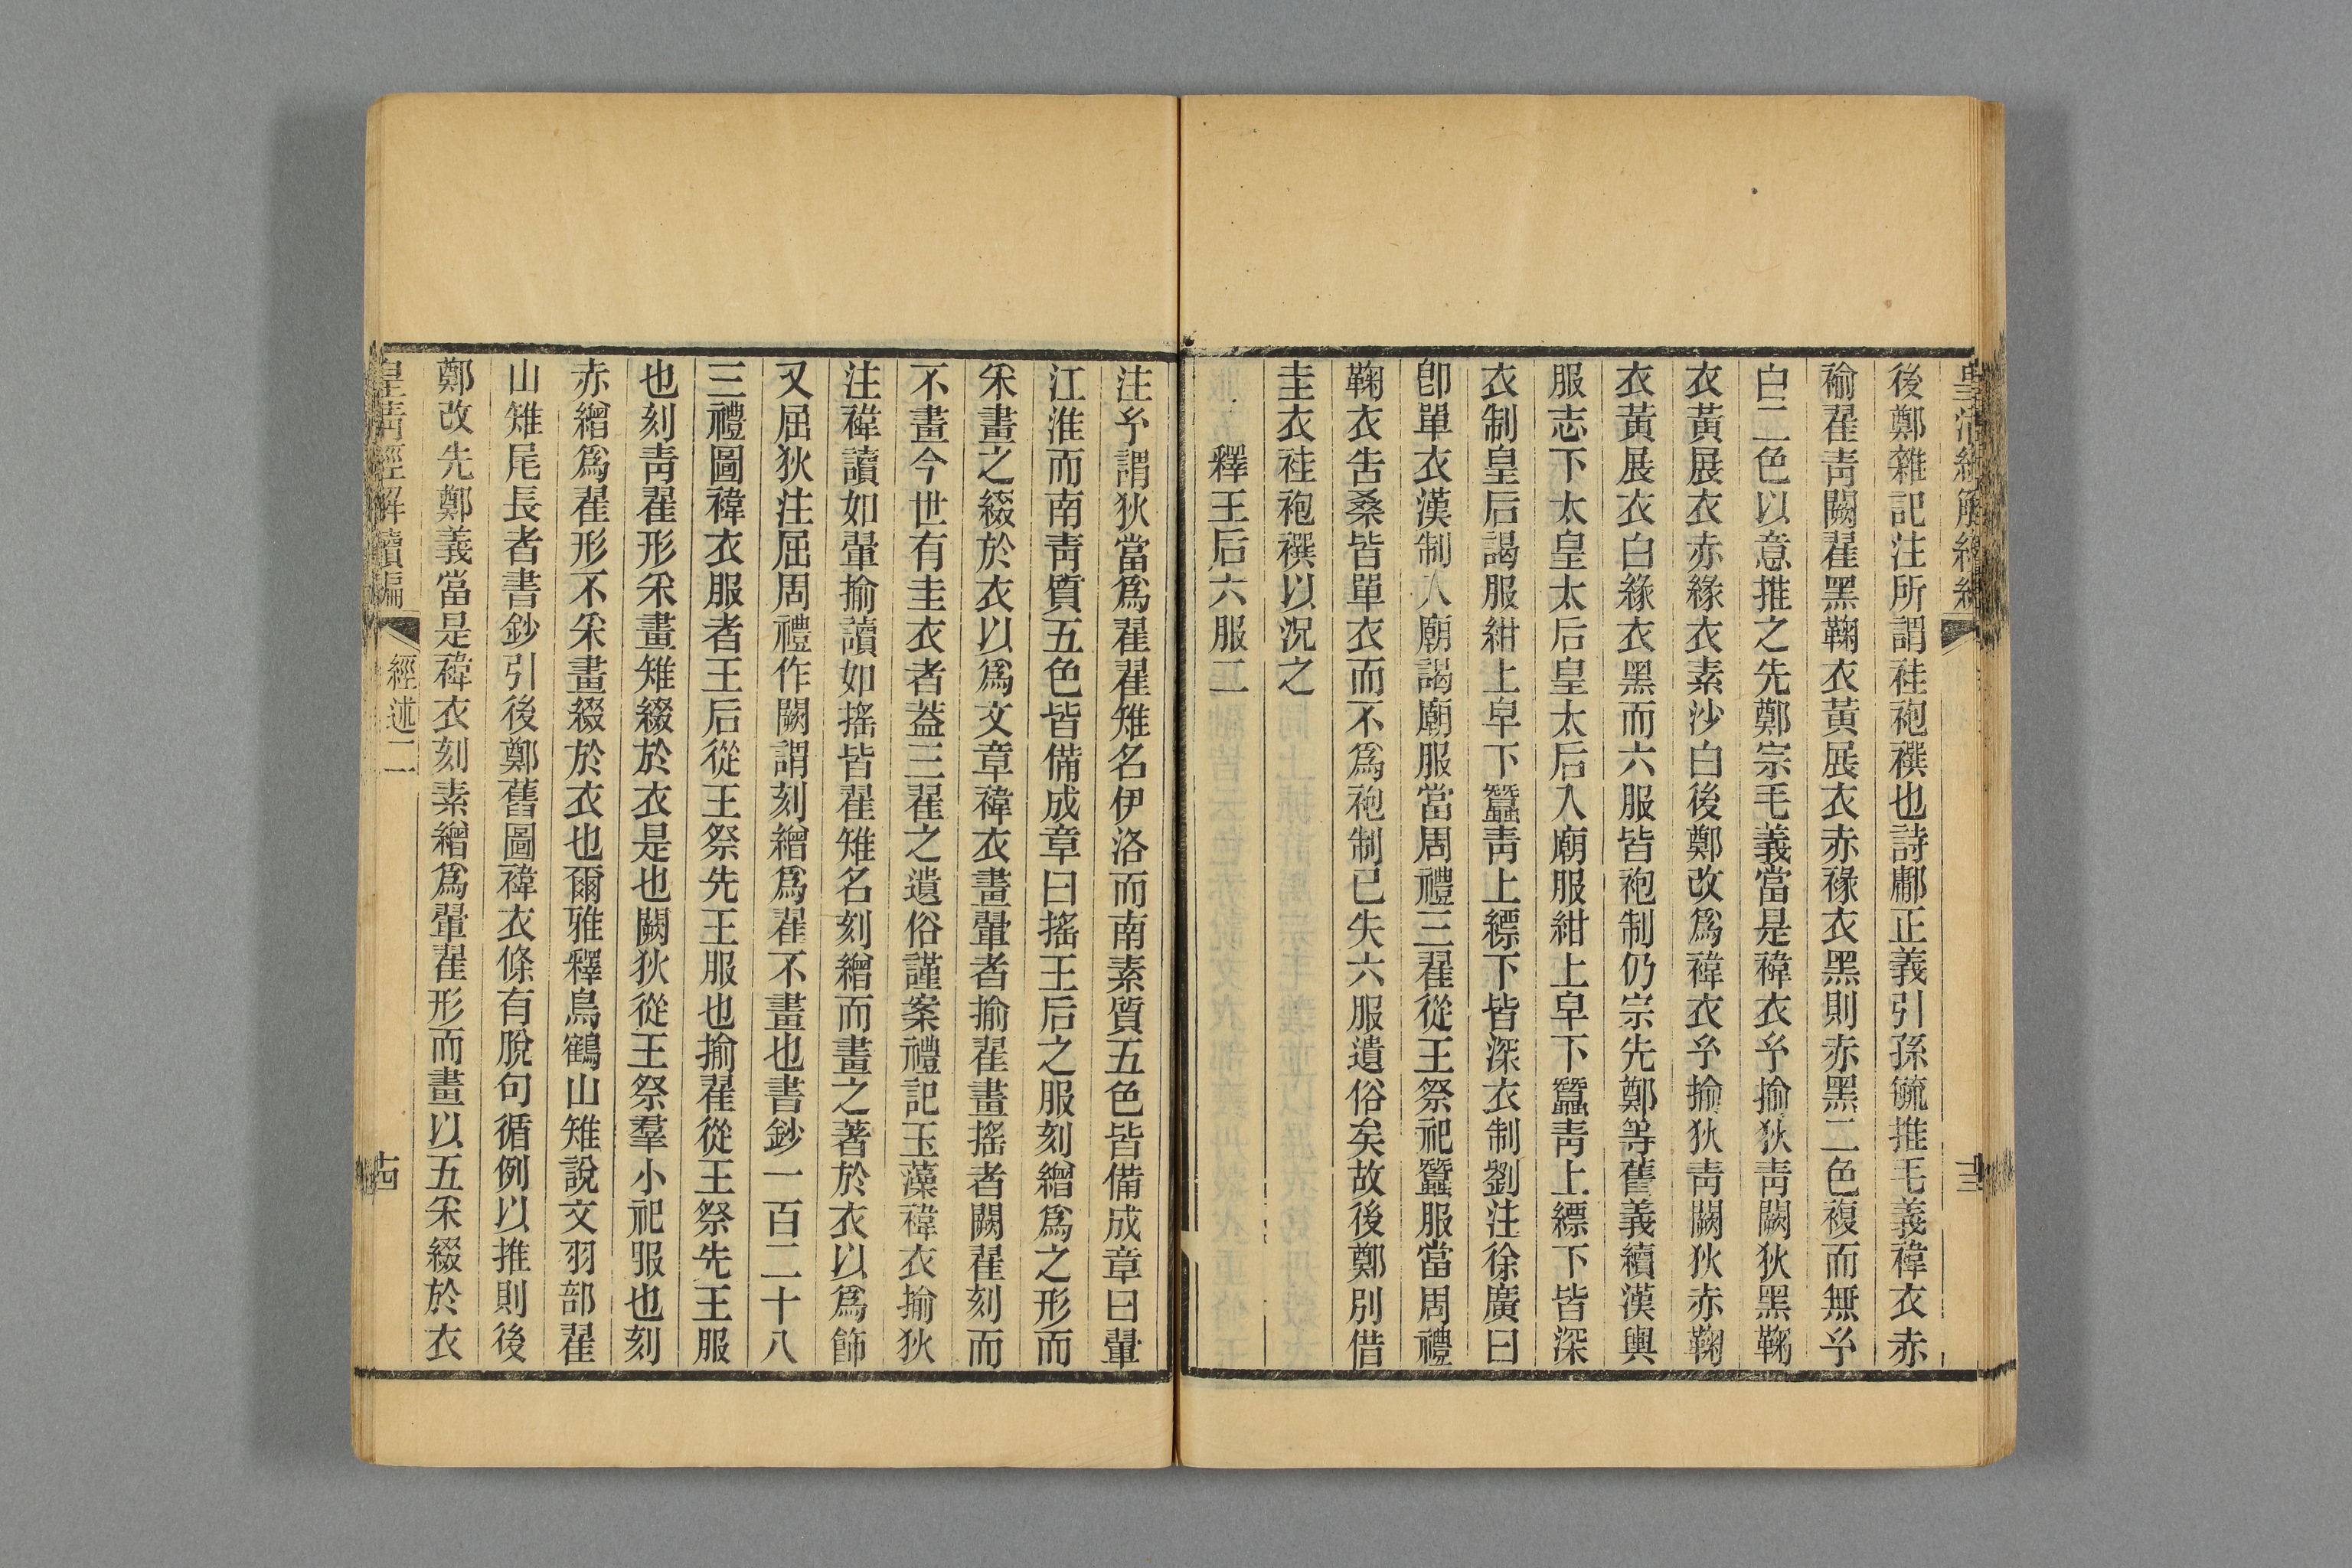 後鄭雜記注所謂袿袍襈也詩鄘正義引孫毓推毛義褘衣赤
褕翟青闕翟黑鞠衣黃展衣赤褖衣黑則赤黑二色複而無𤣥
白二色以意推之先鄭宗毛義當是褘衣𤣥揄狄青闕狄黑鞠
衣黃展衣赤緣衣素沙白後鄭改爲褘衣𤣥揄狄青闕狄赤鞠
衣黃展衣白緣衣黑而六服皆袍制仍宗先鄭等舊義續漢輿
服志下太皇太后皇太后入廟服紺上皁下蠶青上縹下皆深
衣制皇后謁服紺上皁下蠶青上縹下皆深衣制劉注徐廣曰
卽單衣漢制入廟謁廟服當周禮三翟從王祭祀蠶服當周禮
鞠衣告桑皆單衣而不爲袍制已失六服遺俗矣故後鄭別借
圭衣袿袍襈以況之
釋王后六服二
注𤣥謂狄當爲翟翟雉名伊洛而南素質五色皆備成章曰翬
江淮而南青質五色皆備成章曰搖王后之服刻繒爲之形而
采畫之綴於衣以爲文章褘衣畫翬者揄翟畫搖者闕翟刻而
不畫今世有圭衣者葢三翟之遺俗謹案禮記玉藻褘衣揄狄
注褘讀如翬揄讀如搖皆翟雉名刻繒而畫之著於衣以爲飾
又屈狄注屈周禮作闕謂刻繒爲翟不畫也書鈔一百二十八
三禮圖褘衣服者王后從王祭先王服也揄翟從王祭先王服
也刻青翟形采畫雉綴於衣是也闕狄從王祭羣小祀服也刻
赤繒爲翟形不采畫綴於衣也爾雅釋鳥鸐山雉說文羽部翟
山雉尾長者書鈔引後鄭舊圖褘衣條有脫句循例以推則後
鄭改先鄭義當是褘衣刻素繒爲翬翟形而畫以五采綴於衣
皇清經解續編
經述二
十四